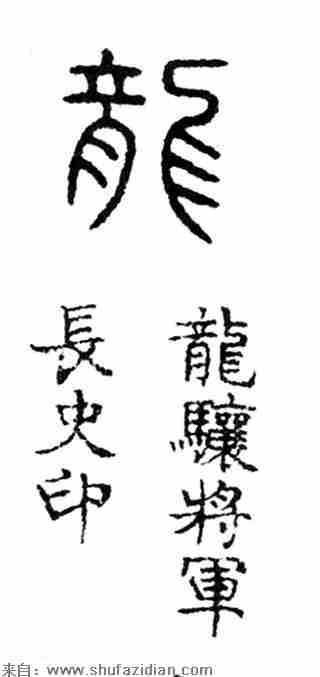 龍
龍驤將軍
長史印
来自：www.shufazidian.com